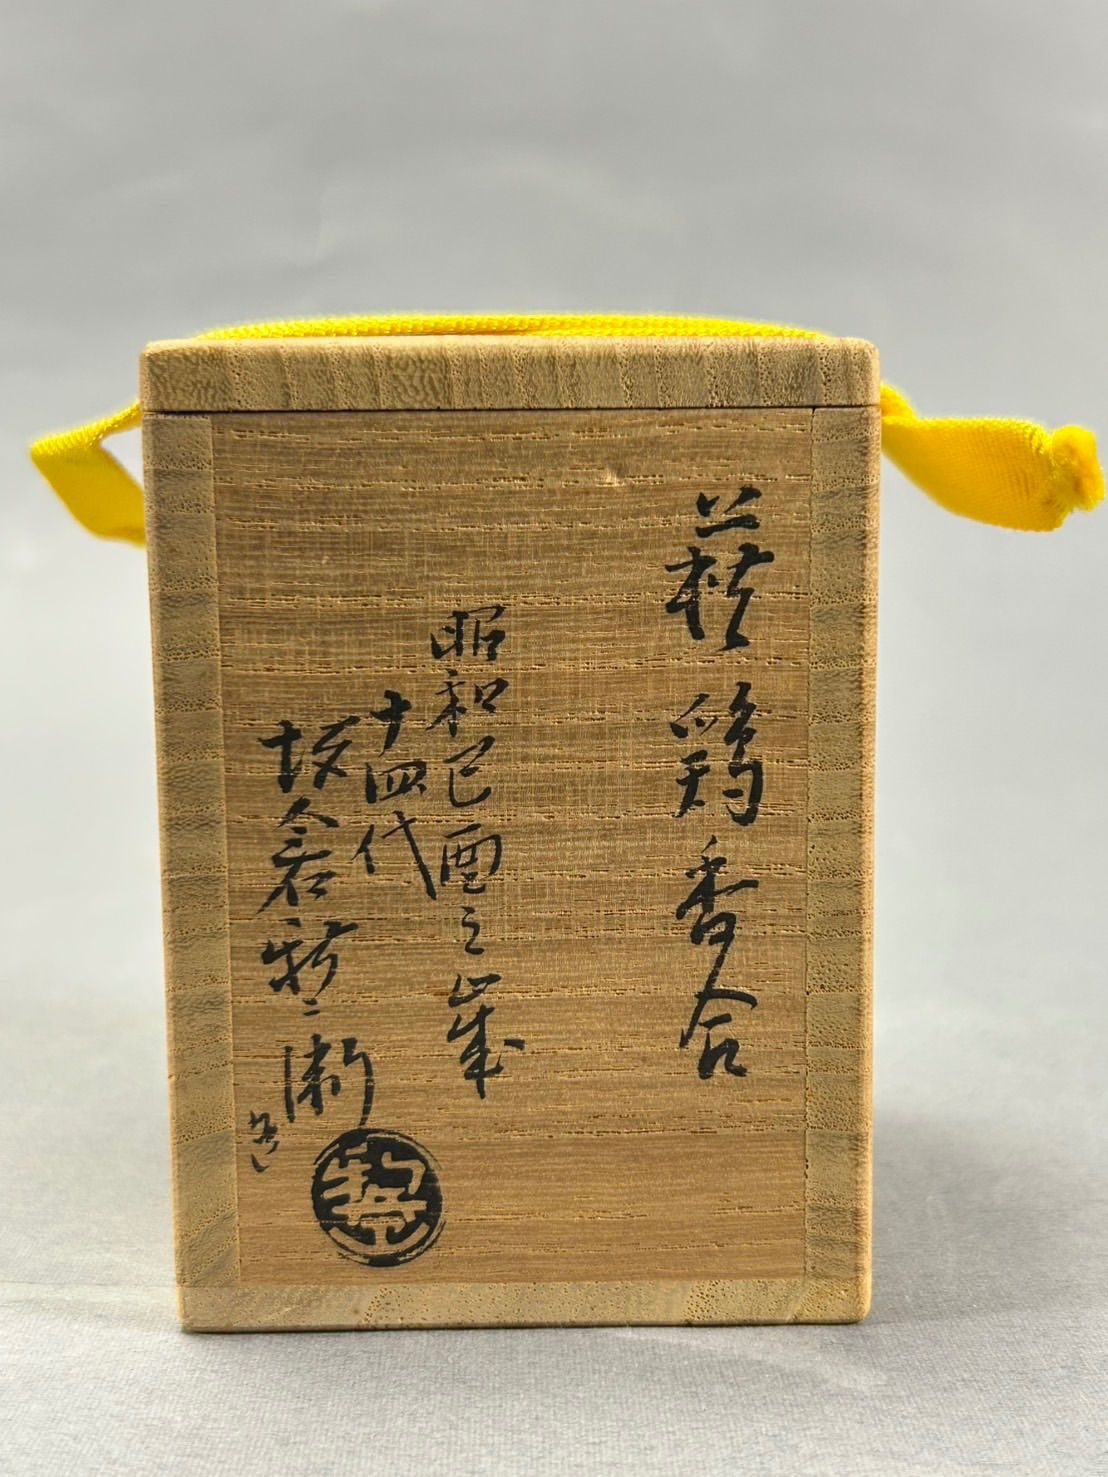 萩 鶏 香合
昭和己酉之歳
十四代
坂倉新兵衛
造